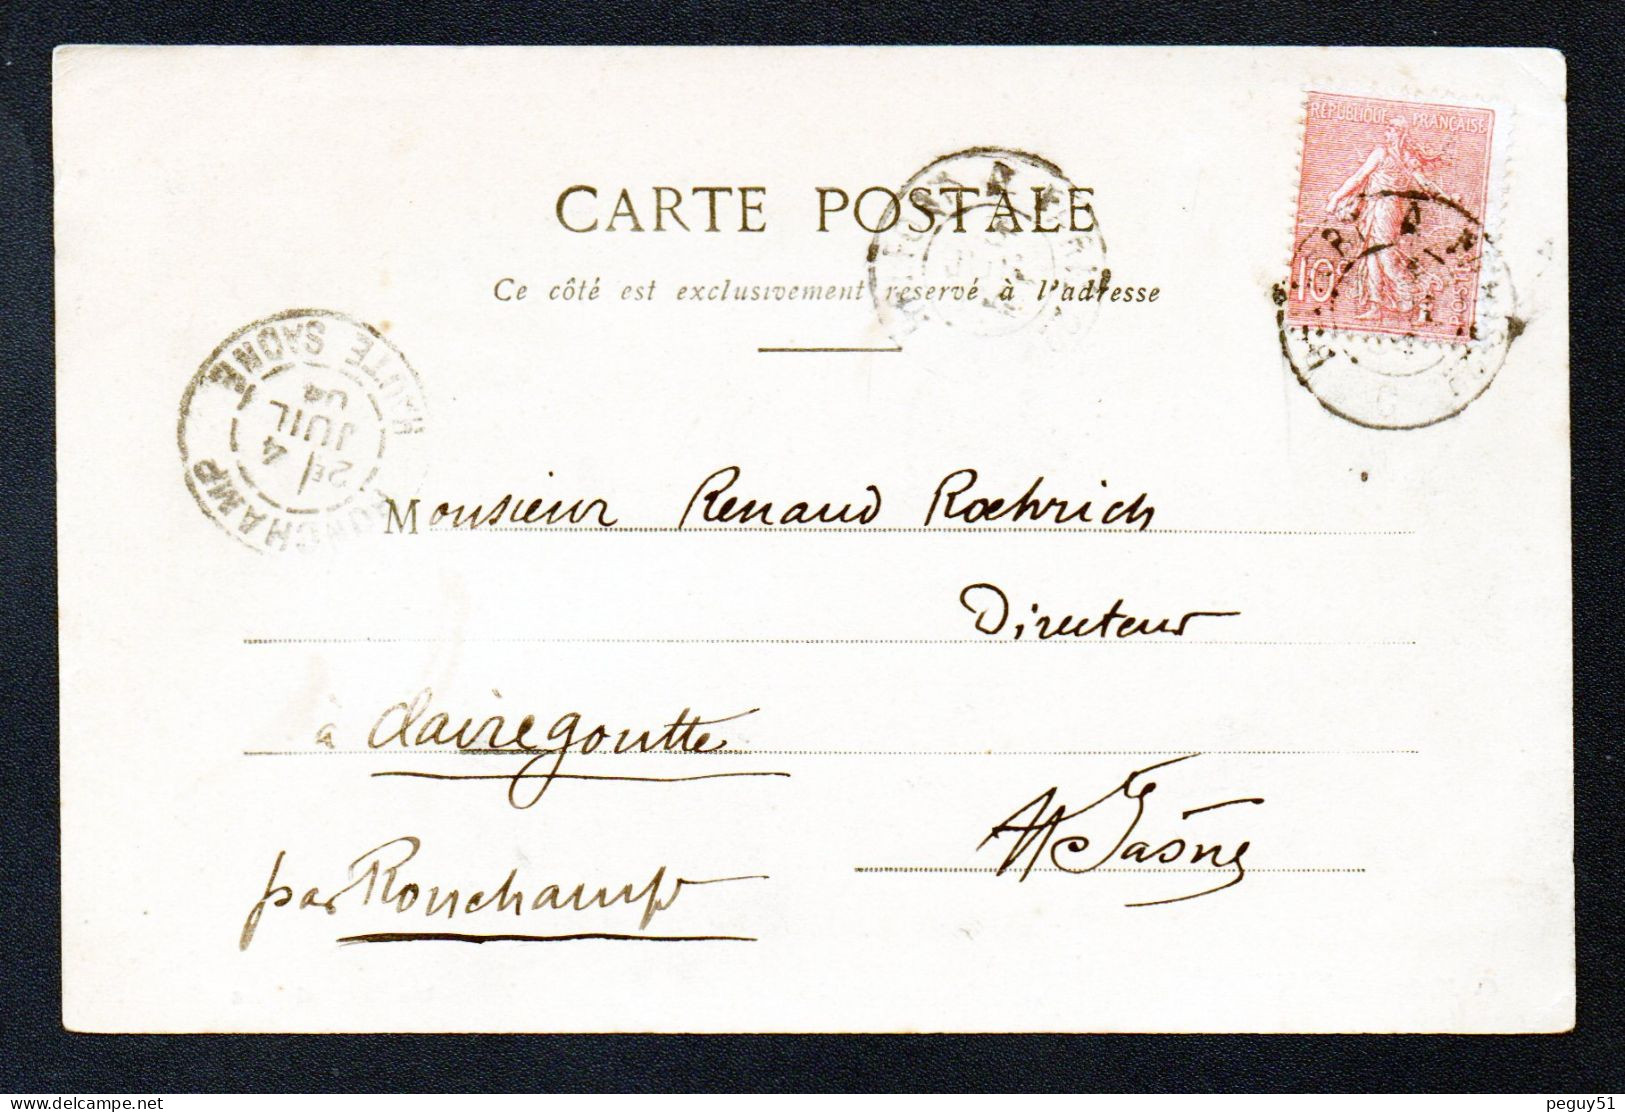 RÉPUBLIQUE FRANÇAISE
10c
POSTES
CARTE POSTALE
Ce côté est exclusivement reservé à l'adresse
RONCHAMP HAUTE SAONE
2E 4
JUIL
04
Monsieur Renaud Roehrich
Directeur
à Clairegoutte
Hte Saône
par Ronchamp
delcampe.net
peguy51